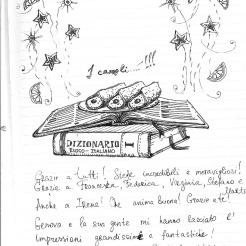 I canoli...!!!
DIZIONARIO
RUSSO-ITALIANO
I
Grazie a tutti! Siete incredibili e meravigliosi!
Grazie a Francesca, Federica, Virginia, Stefano e
Anche a Irena! Che anima buona! Grazie a te!
Genova e la sua gente mi hanno lasciato l'
impressioni grandissime e fantastiche!